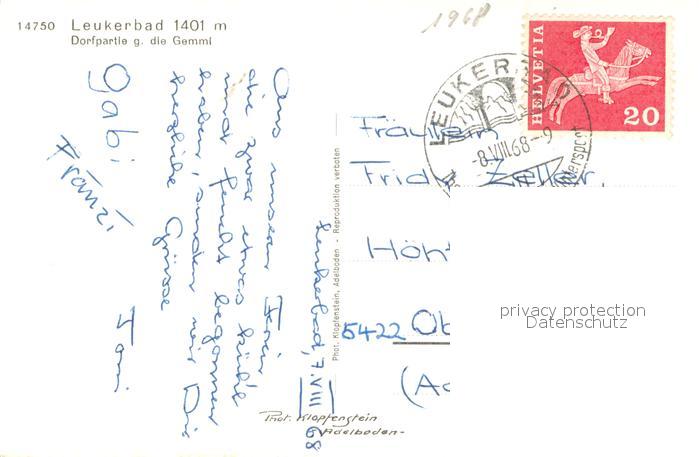 14750 Leukerbad 1401 m
Dorfpartie g. die Gemmi
1968
HELVETIA
20
LEUKERBAD
-8.VIII.68-9
Leukerbad, 7. VIII 68
Aus unseren Ferien,
die zwar etwas kühl
und feucht begonnen
haben, senden wir Dir
herzliche Grüsse
Toni
Gabi
Franzi
Phot. Klopfenstein, Adelboden - Reproduktion verboten
Fräulein
Frida Zeller,
Höh
5422 Ob
(A
privacy protection
Datenschutz
Phot. Klopfenstein
Adelboden-